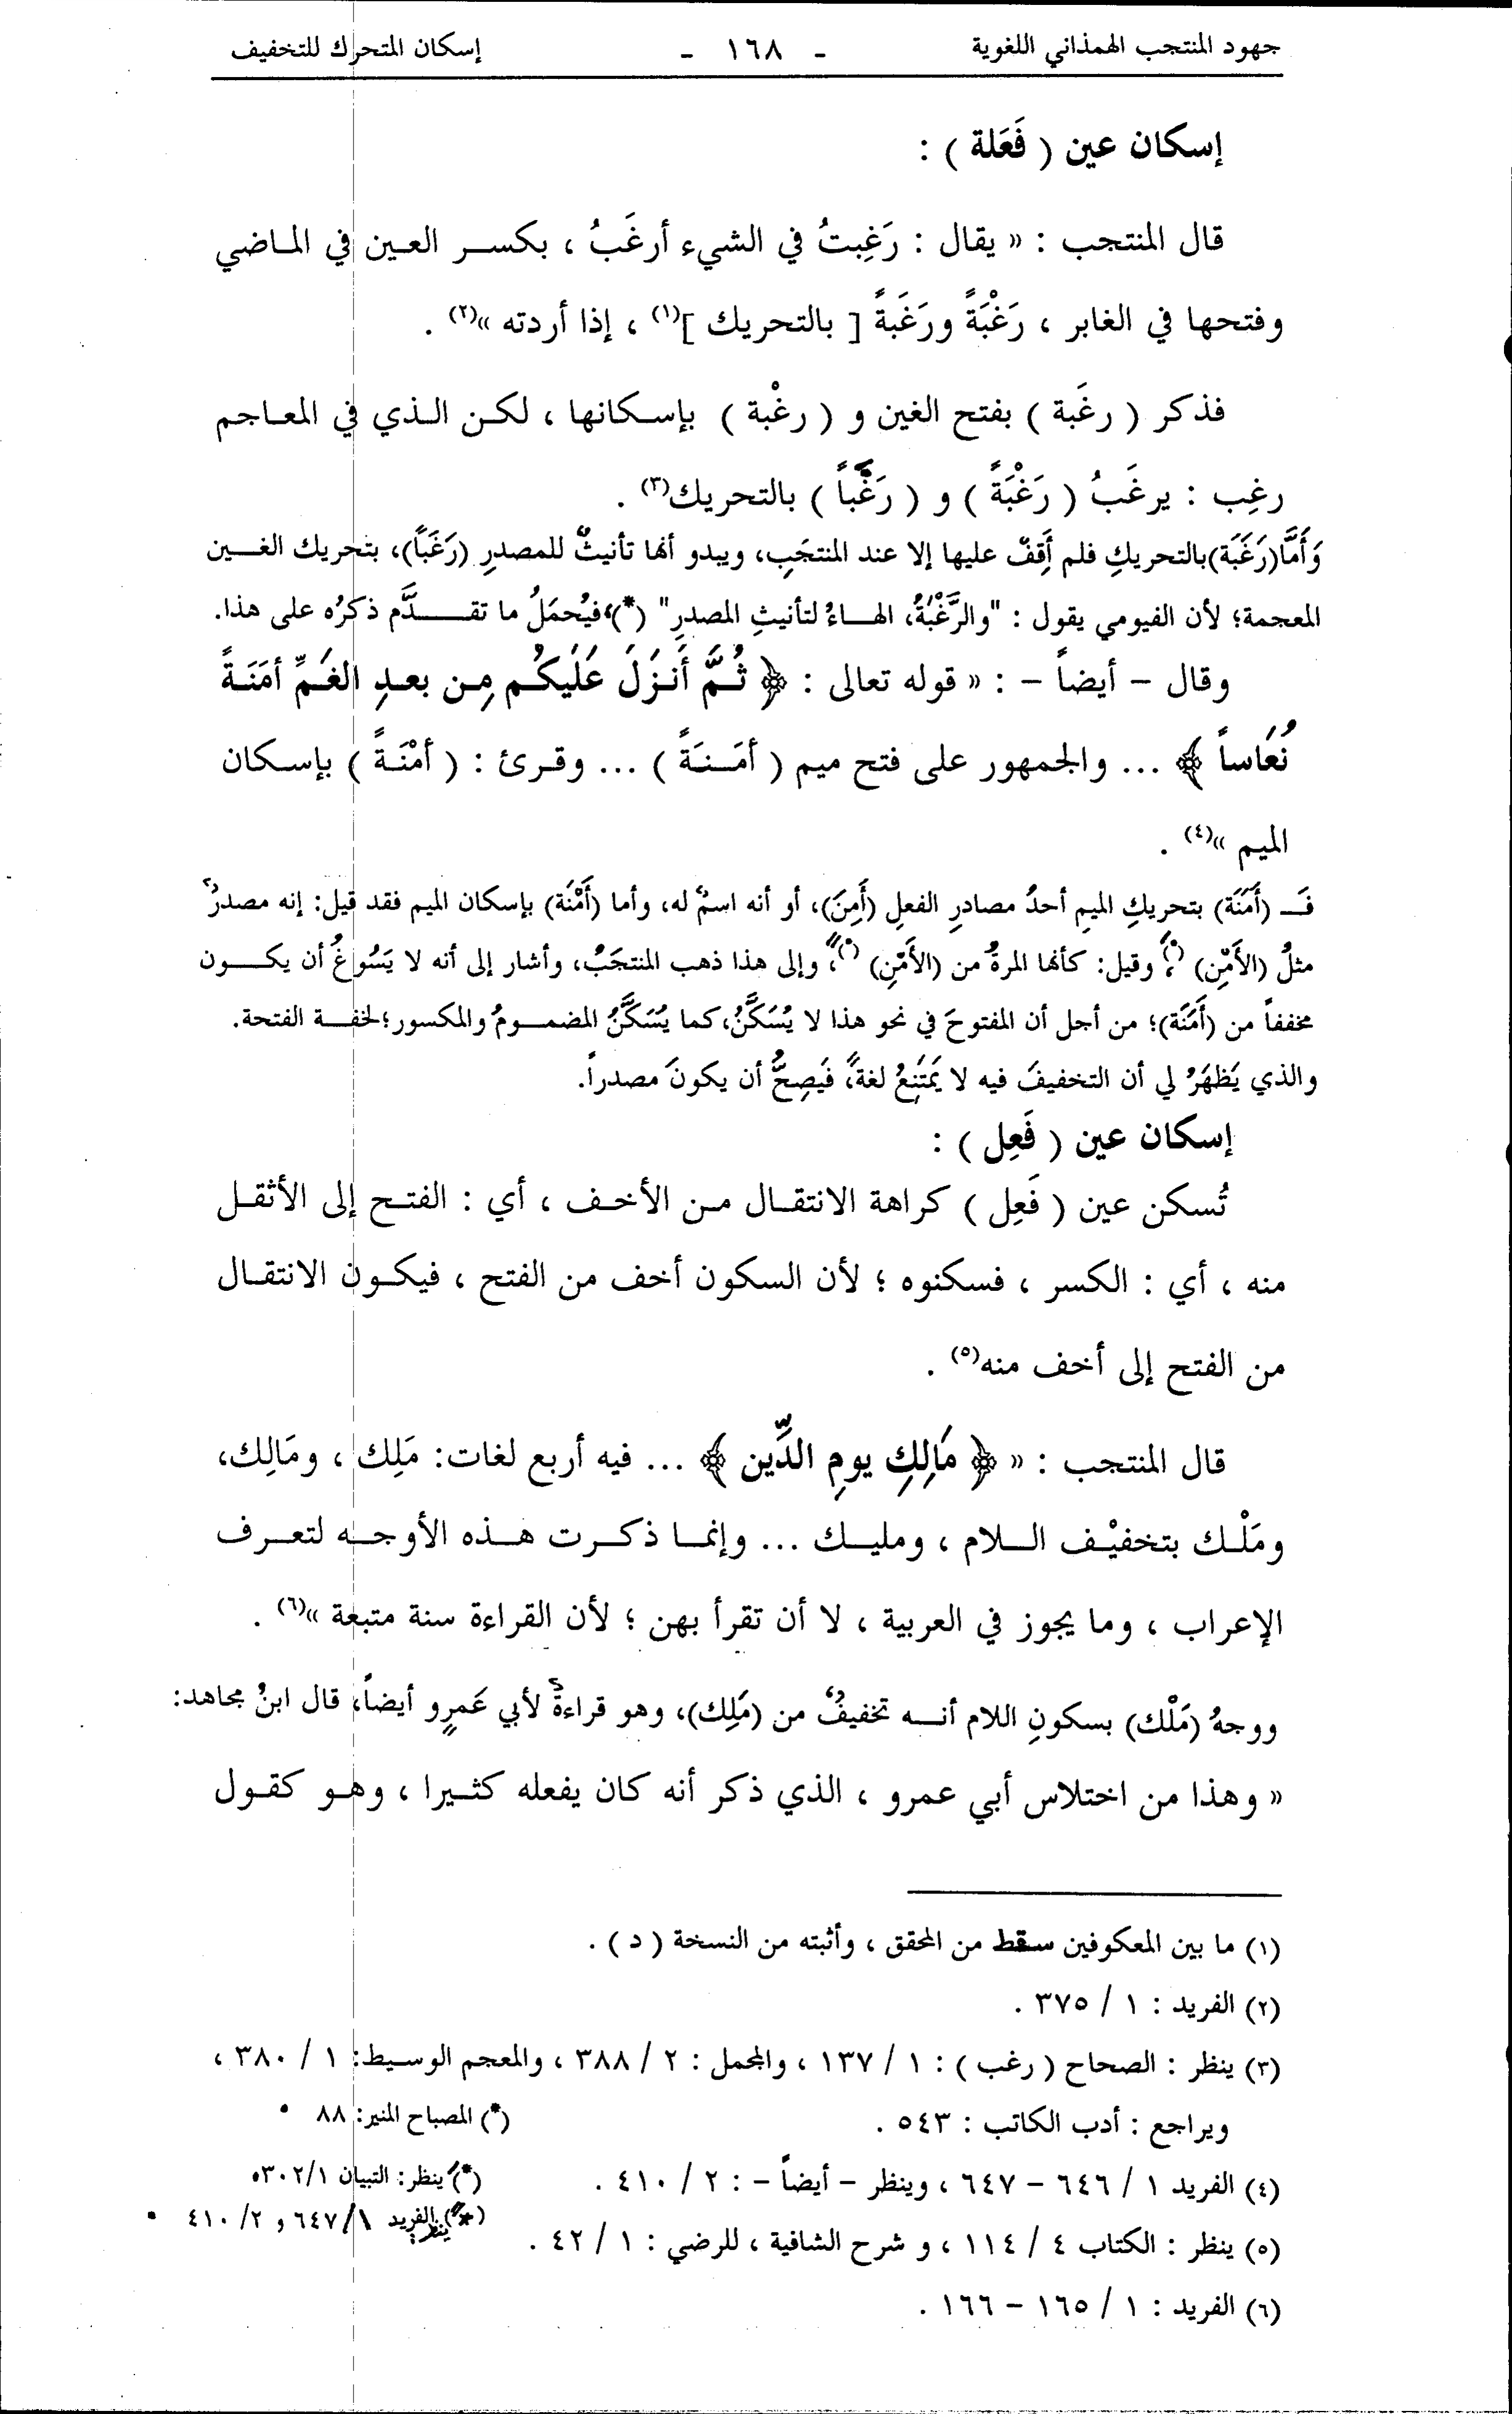 جهود المنتجب الهمذاني اللغوية - ١٦٨ - إسكان المتحرك للتخفيف
إسكان عين ( فَعَلة ) :
قال المنتجب : « يقال : رَغِبتُ في الشيء أرغَبُ ، بكسر العين في الماضي
وفتحها في الغابر ، رَغْبَةً ورَغَبةً [ بالتحريك ](١) ، إذا أردته »(٢) .
فذكر ( رغَبة ) بفتح الغين و ( رغْبة ) بإسكانها ، لكن الذي في المعاجم
رغِب : يرغَبُ ( رَغْبَةً ) و ( رَغَباً ) بالتحريك(٣) .
وَأَمَّا(رَغَبَة)بالتحريكِ فلم أَقِفْ عليها إلا عند المنتجَبِ، ويبدو أنها تأنيثٌ للمصدرِ (رَغَباً)، بتحريك الغين
المعجمة؛ لأن الفيومي يقول : "والرَّغْبَةُ، الهاءُ لتأنيثِ المصدرِ" (*)، فيُحمَلُ ما تقدَّم ذكرُه على هذا.
وقال – أيضاً – : « قوله تعالى : ﴿ ثُمَّ أَنزَلَ عَلَيكُم مِن بعدِ الغَمِّ أمَنَةً
نُعَاساً ﴾ ... والجمهور على فتح ميم ( أمَنَةً ) ... وقرئ : ( أمْنَةً ) بإسكان
الميم »(٤) .
فَـ (أَمَنَة) بتحريكِ الميمِ أحدُ مصادرِ الفعلِ (أَمِنَ)، أو أنه اسمٌ له، وأما (أَمْنَة) بإسكان الميم فقد قيل: إنه مصدرٌ
مثلُ (الأَمْنِ) (*َ)، وقيل: كأنها المرةُ من (الأَمْنِ) (*ً)، وإلى هذا ذهب المنتجَبُ، وأشار إلى أنه لا يَسُوغُ أن يكون
مخففاً من (أَمَنَة)؛ من أجل أن المفتوحَ في نحو هذا لا يُسَكَّنُ، كما يُسَكَّنُ المضمومُ والمكسور؛ لخفة الفتحة.
والذي يَظهَرُ لي أن التخفيفَ فيه لا يَمتَنِعُ لغةً، فَيَصِحُّ أن يكونَ مصدراً.
إسكان عين ( فَعِل ) :
تُسكن عين ( فَعِل ) كراهة الانتقال من الأخف ، أي : الفتح إلى الأثقل
منه ، أي : الكسر ، فسكنوه ؛ لأن السكون أخف من الفتح ، فيكون الانتقال
من الفتح إلى أخف منه(٥) .
قال المنتجب : « ﴿ مَالِكِ يومِ الدِّين ﴾ ... فيه أربع لغات: مَلِك ، ومَالِك،
ومَلْك بتخفيْف اللام ، ومليك ... وإنما ذكرت هذه الأوجه لتعرف
الإعراب ، وما يجوز في العربية ، لا أن تقرأ بهن ؛ لأن القراءة سنة متبعة »(٦) .
ووجهُ (مَلْك) بسكونِ اللام أنه تخفيفٌ من (مَلِك)، وهو قراءةٌ لأبي عَمرٍو أيضاً، قال ابنُ مجاهد:
« وهذا من اختلاس أبي عمرو ، الذي ذكر أنه كان يفعله كثيرا ، وهو كقول
(١) ما بين المعكوفين سقط من المحقق ، وأثبته من النسخة ( د ) .
(٢) الفريد : ١ / ٣٧٥ .
(٣) ينظر : الصحاح ( رغب ) : ١ / ١٣٧ ، والمجمل : ٢ / ٣٨٨ ، والمعجم الوسيط: ١ / ٣٨٠ ،
ويراجع : أدب الكاتب : ٥٤٣ . (*) المصباح المنير: ٨٨ .
(٤) الفريد ١ / ٦٤٦ – ٦٤٧ ، وينظر – أيضاً – : ٢ / ٤١٠ . (*َ) ينظر: التبيان ٣٠٢/١.
(*ً) ينظر: الفريد ٦٤٧/١ و ٢/ ٤١٠ .
(٥) ينظر : الكتاب ٤ / ١١٤ ، و شرح الشافية ، للرضي : ١ / ٤٢ .
(٦) الفريد : ١ / ١٦٥ – ١٦٦ .